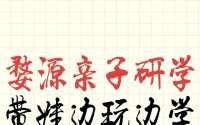 婺源亲子研学
带娃边玩边学